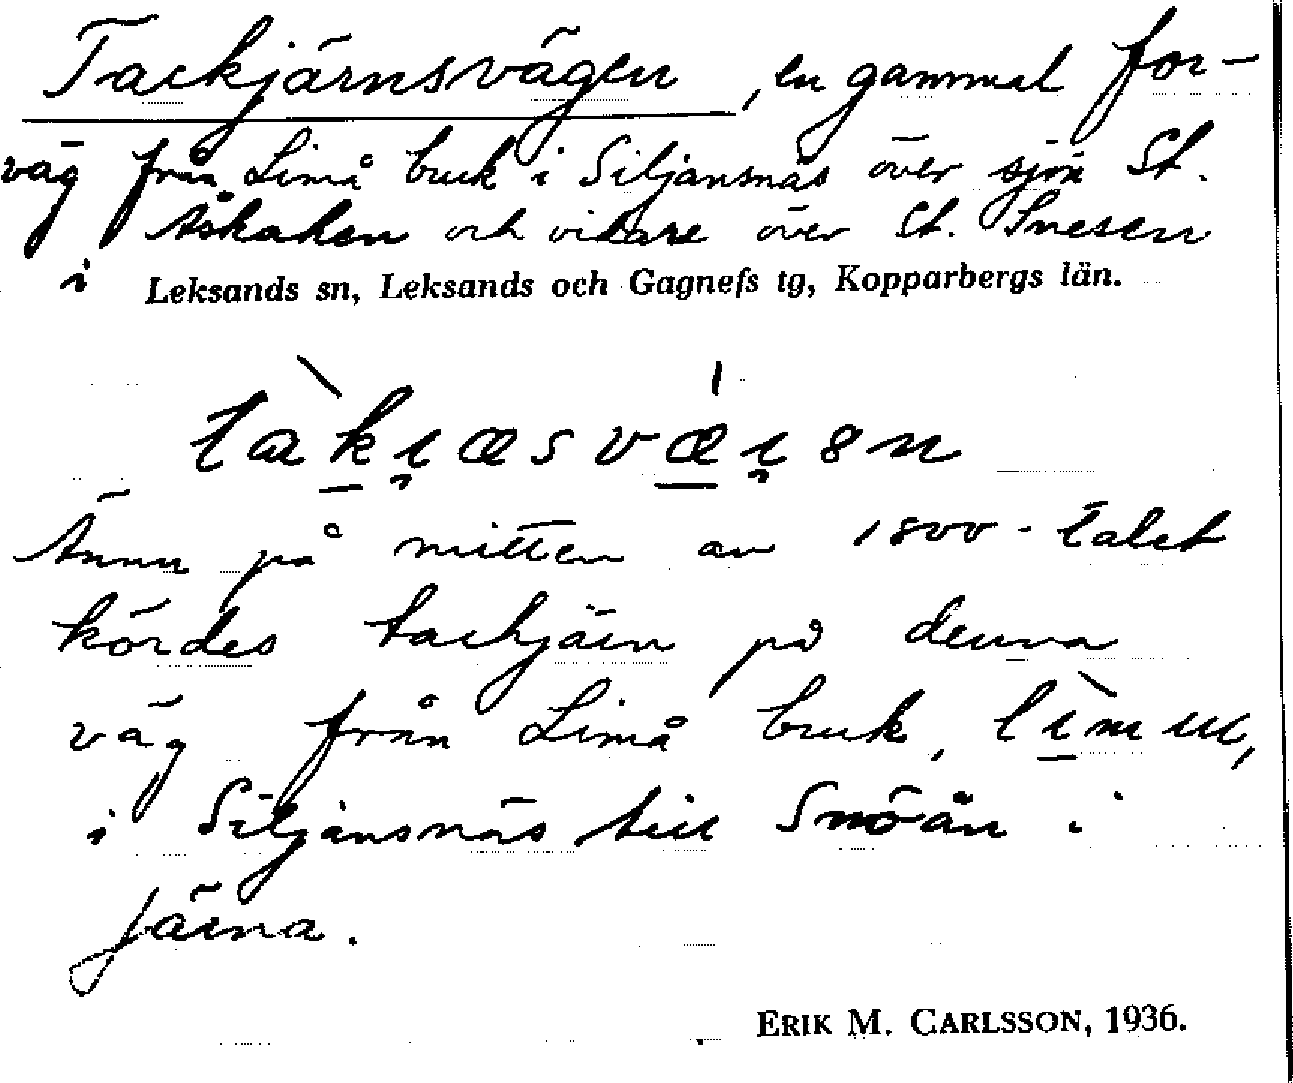 Tackjärnsvägen, en gammal for-
väg från Limå bruk i Siljansnäs över sjön St.
Äskaken och vidare över St. Snesen
i Leksands sn, Leksands och Gagnefs tg, Kopparbergs län.
Ännu på mitten av 1800-talet
kördes tackjärn på denna
väg från Limå bruk, lìmu,
i Siljansnäs till Snöån i
Järna.
ERIK M. CARLSSON, 1936.